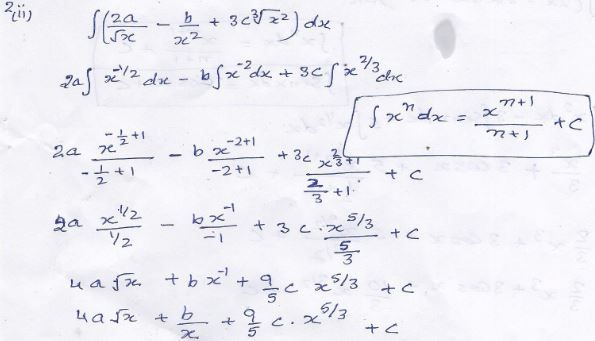 2(ii) ∫(2a/√x − b/x² + 3c ∛x²) dx
2a∫ x^(-1/2) dx − b∫x^(-2) dx + 3c ∫x^(2/3) dx
∫ x^n dx = x^(n+1)/(n+1) + c
2a x^(-1/2+1)/(-1/2+1) − b x^(-2+1)/(-2+1) + 3c x^(2/3+1)/(2/3+1) + c
2a x^(1/2)/(1/2) − bx^(-1)/(-1) + 3c·x^(5/3)/(5/3) + c
4a√x + bx^(-1) + 9/5 c x^(5/3) + c
4a√x + b/x + 9/5 c·x^(5/3) + c